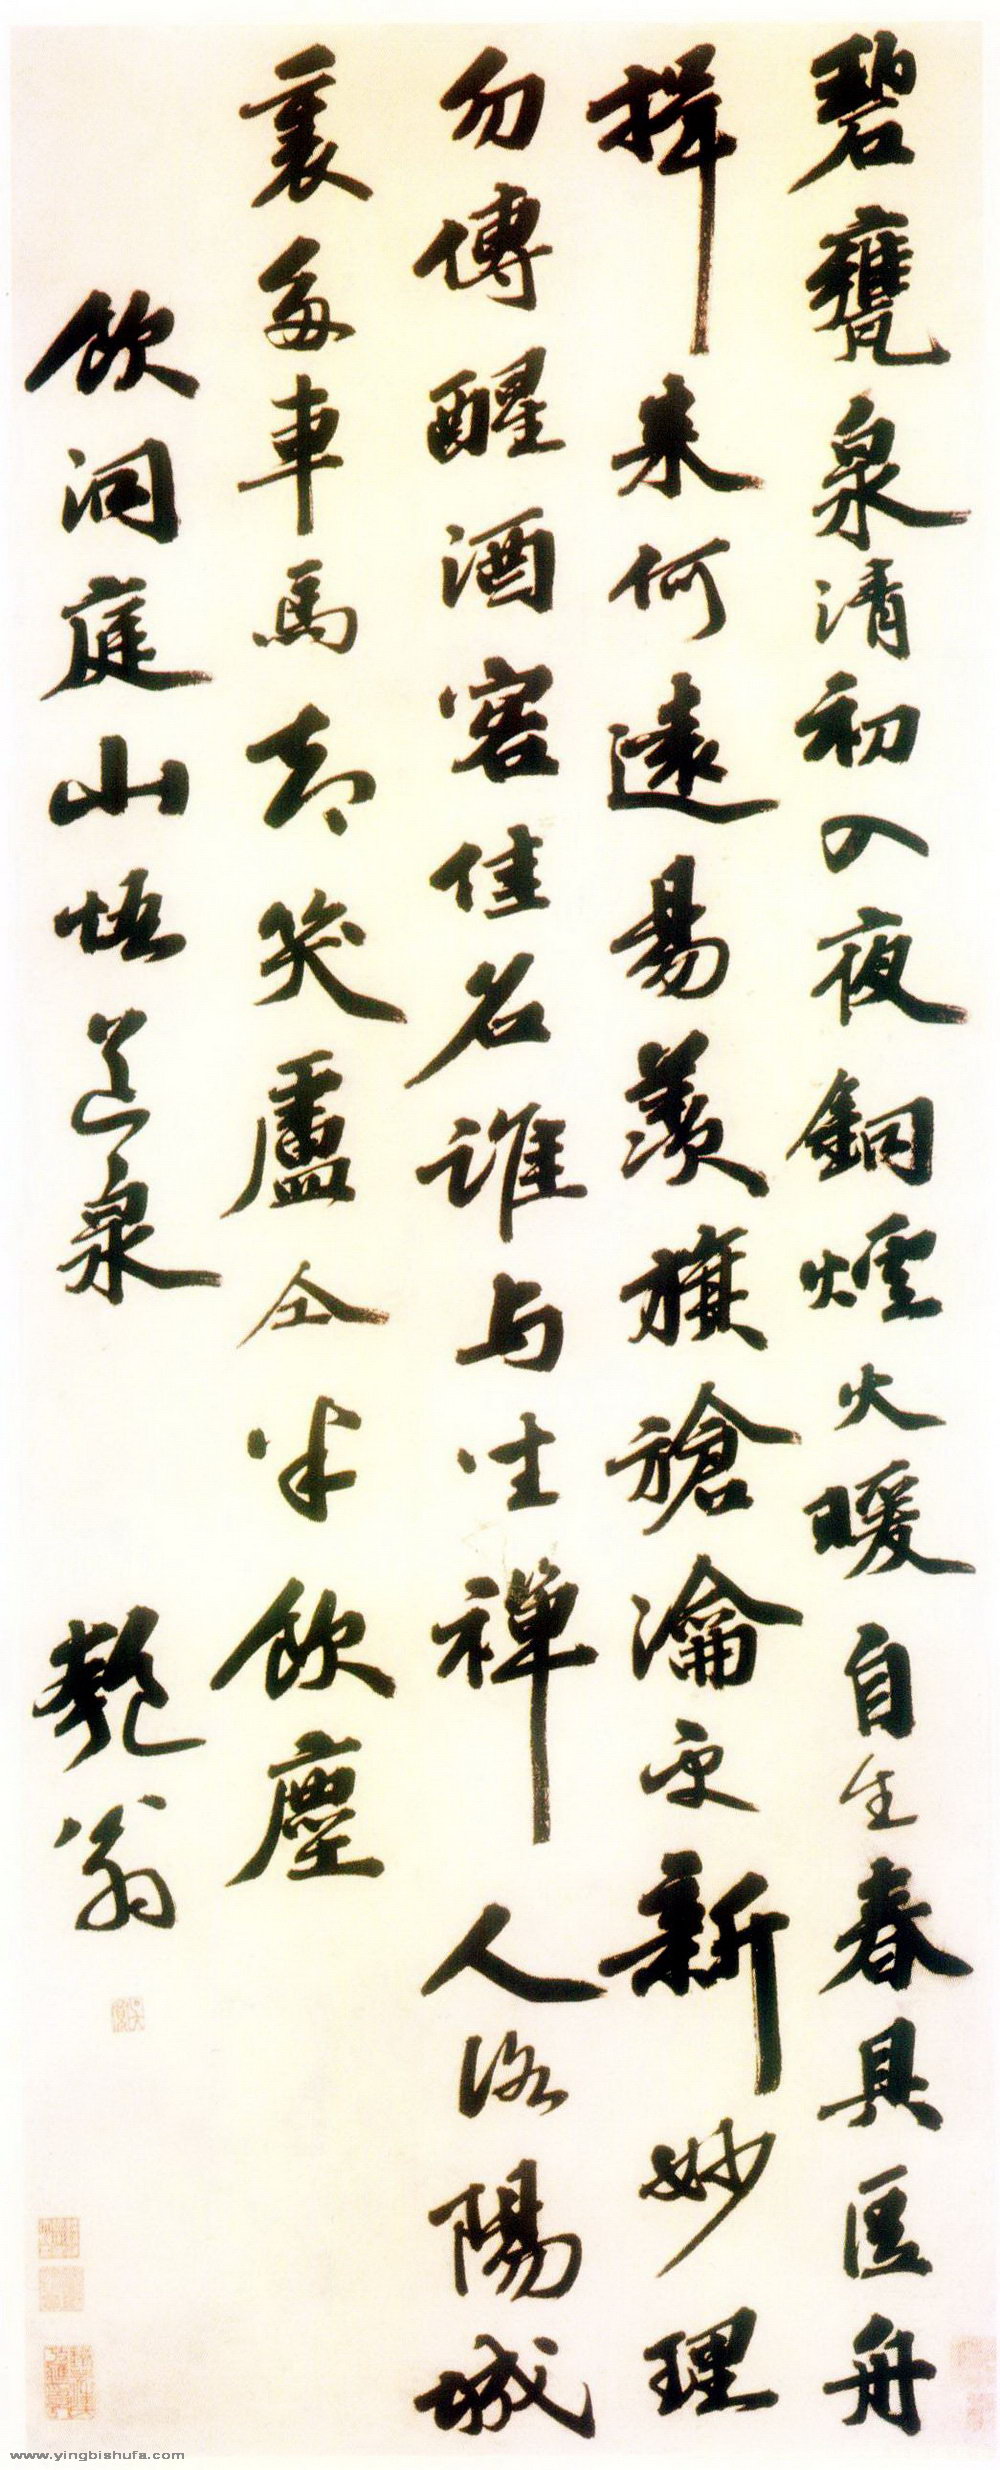 碧甕泉清初入夜銅爐火暖自生春具區舟
楫來何遠昜羨旗槍瀹更新妙理
勿傳醒酒客佳名誰与坐禪人洛陽城
裏多車馬却笑盧仝半飲塵
飲洞庭山悟道泉
匏翁
www.yingbishufa.com